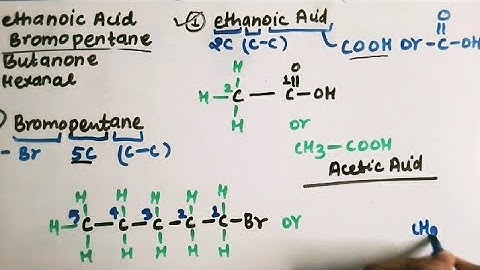 ethanoic Acid
Bromopentane
Butanone
Hexanal
① ethanoic Acid
2C (C-C) COOH or -C-OH
O
||
H O
H - ²C - ¹C - OH
H
or
CH3-COOH
Acetic Acid
Bromopentane
- Br 5C (C-C)
H H H H H
H-⁵C-⁴C-³C-²C-¹C-Br or
H H H H H
CH